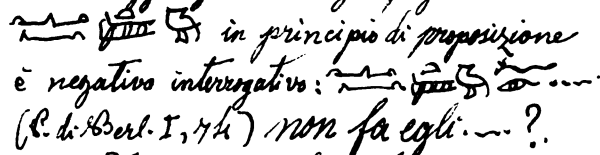 in principio di proposizione
è negativo interrogativo: ....
(P. di Berl. I, 74) non fa egli .... ?